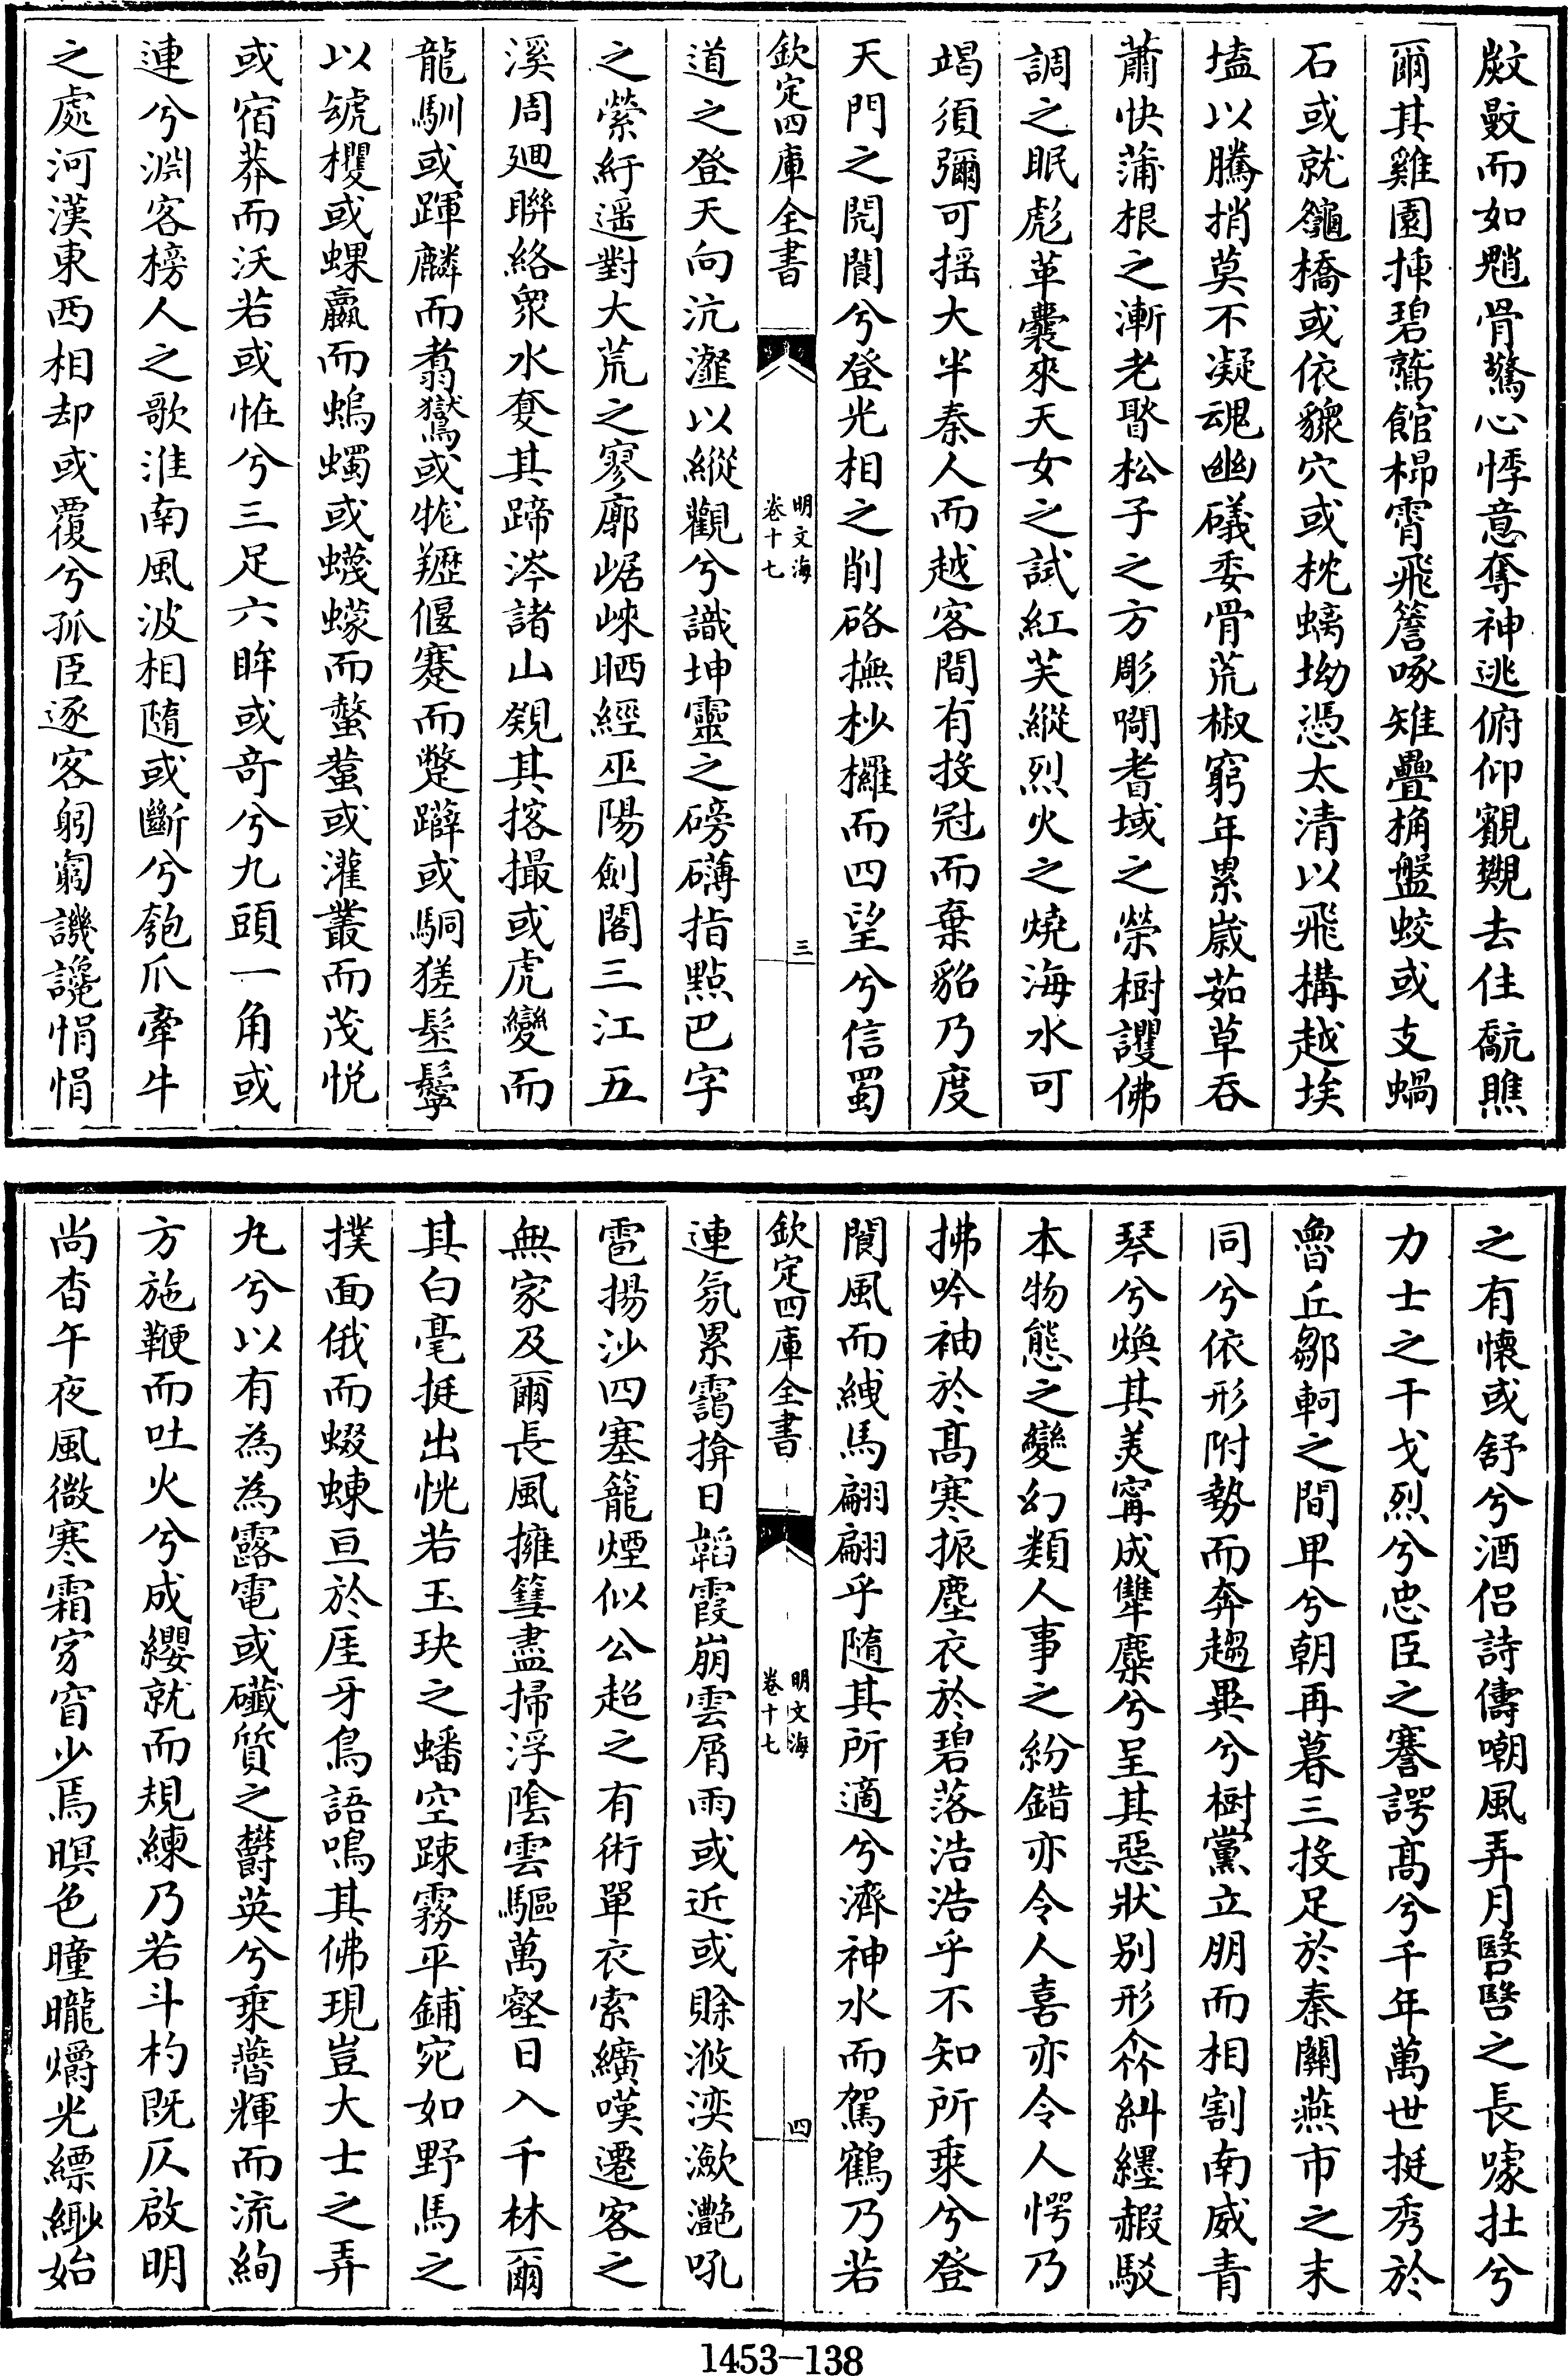 㱿㪤而如魈骨驚心悸意奪神逃俯仰觀䚀去住翫瞧
爾其雞園揀碧鷲館㭿霄飛簷啄雉疊桷盤蛟或支蝸
石或就龜橋或依貔穴或枕螭坳憑太清以飛構越埃
壒以騰捎莫不凝魂幽礒委骨荒椒窮年累嵗茹草吞
蕭快蒲根之漸老瞖松子之方彫啺耆域之榮樹謢佛
調之眠彪革囊來天女之試紅芙縱烈火之燒海水可
竭須彌可揺大半秦人而越客間有投冠而棄貂乃度
天門之閌閬兮登光相之削硌撫杪欏而四望兮信蜀
欽定四庫全書 明文海 卷十七 三
道之登天向沆瀣以縱觀兮識坤靈之磅礴指點巴字
之縈紆遥對大荒之寥廓崌崍晒經巫陽劍閣三江五
溪周廻聯絡衆水奓其蹄涔諸山覣其掊撮或虎變而
龍馴或踔麟而翥鸑或㹠䍽偃蹇而蹩躃或駧㹐髬髵
以虓玃或蜾蠃而蝎蠋或蠛蠓而螫蜇或灌叢而茂悦
或宿莽而沃若或恠兮三足六眸或竒兮九頭一角或
連兮淵客榜人之歌淮南風波相隨或斷兮匏瓜牽牛
之處河漢東西相却或覆兮孤臣逐客躬窮譏讒悁悁
之有懷或舒兮酒侣詩儔嘲風弄月㗨㗨之長噱壯兮
力士之干戈烈兮忠臣之謇諤髙兮千年萬世挺秀於
魯丘鄒軻之間甲兮朝再暮三投足於秦關燕市之末
同兮依形附勢而奔趨異兮樹黨立朋而相割南威青
琴兮煥其美寗成犨麋兮呈其惡狀别形㑹糾纆赮駁
本物態之變幻類人事之紛錯亦令人喜亦令人愕乃
拂吟袖於髙寒振塵衣於碧落浩浩乎不知所乗兮登
閬風而緤馬翩翩乎隨其所適兮濟神水而駕鶴乃若
欽定四庫全書 明文海 卷十七 四
連氛累靄揜日韜霞崩雲屑雨或近或賒浟湙瀲灔吼
雹揚沙四塞籠煙似公超之有術單衣索纊嘆遷客之
無家及爾長風擁篲盡掃浮陰雲驅萬壑日入千林爾
其白毫挺出恍若玉玦之蟠空踈霧平鋪宛如野馬之
撲面俄而蝃蝀亘於厓牙鳥語鳴其佛現豈大士之弄
丸兮以有為為露電或礟質之欝英兮乗瞢輝而流絢
方施鞭而吐火兮成纓就而規練乃若斗杓既仄啟明
尚杳午夜風微寒霜穿窗少焉暝色曈曨爝光縹緲始
1453-138